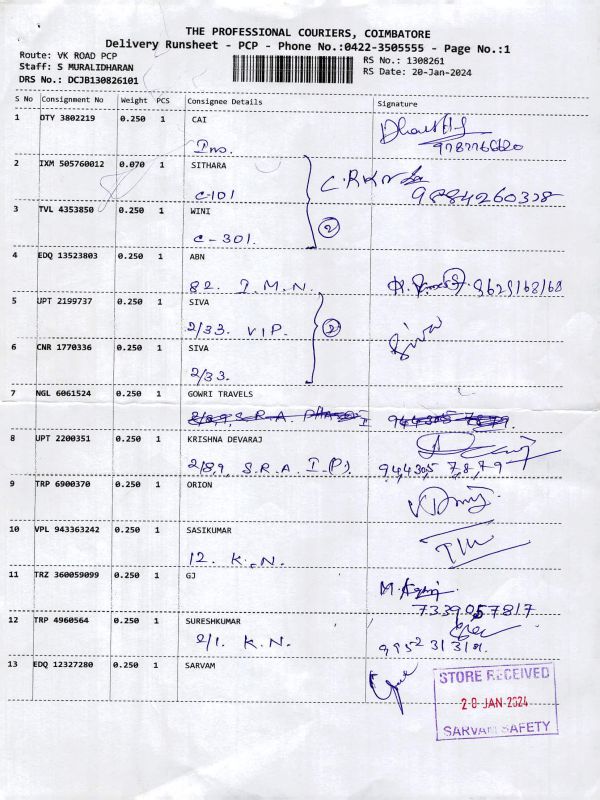 THE PROFESSIONAL COURIERS, COIMBATORE
Delivery Runsheet - PCP - Phone No.:0422-3505555 - Page No.:1
Route: VK ROAD PCP
Staff: S MURALIDHARAN
DRS No.: DCJB130826101
RS No.: 1308261
RS Date: 20-Jan-2024
S No Consignment No Weight PCS Consignee Details Signature
1 DTY 3802219 0.250 1 CAI
2 IXM 505760012 0.070 1 SITHARA
C-101
C.R.K
9884260328
3 TVL 4353850 0.250 1 WINI
C-301.
2
4 EDQ 13523803 0.250 1 ABN
82. I.M.N.
5 UPT 2199737 0.250 1 SIVA
2/33. VIP.
2
Siva
6 CNR 1770336 0.250 1 SIVA
2/33.
7 NGL 6061524 0.250 1 GOWRI TRAVELS
8 UPT 2200351 0.250 1 KRISHNA DEVARAJ
2/89, S.R.A. I (P).
94430578 79
9 TRP 6900370 0.250 1 ORION
10 VPL 943363242 0.250 1 SASIKUMAR
12. K.N.
11 TRZ 360059099 0.250 1 GJ
7339057817
12 TRP 4960564 0.250 1 SURESHKUMAR
2/1. K.N.
13 EDQ 12327280 0.250 1 SARVAM
STORE RECEIVED
20 JAN 2024
SARVAM SAFETY